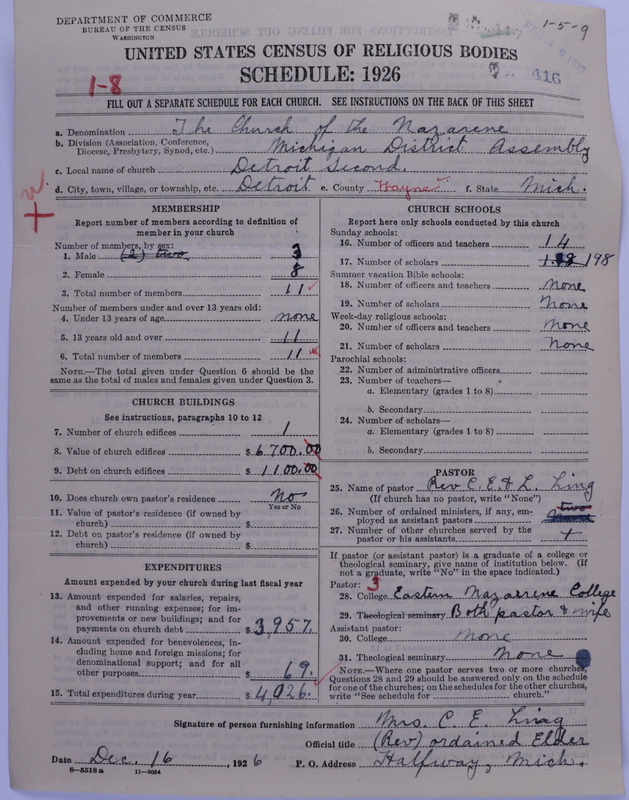 DEPARTMENT OF COMMERCE
BUREAU OF THE CENSUS
WASHINGTON
417
1-5-9
416
UNITED STATES CENSUS OF RELIGIOUS BODIES
SCHEDULE: 1926
1-8
FILL OUT A SEPARATE SCHEDULE FOR EACH CHURCH. SEE INSTRUCTIONS ON THE BACK OF THIS SHEET
a. Denomination The Church of the Nazarene
b. Division (Association, Conference, Diocese, Presbytery, Synod, etc.) Michigan District Assembly
c. Local name of church Detroit Second.
d. City, town, village, or township, etc. Detroit e. County Wayne f. State Mich.
MEMBERSHIP
Report number of members according to definition of
member in your church
Number of members, by sex:
1. Male (2) two 3
2. Female 8
3. Total number of members 11
Number of members under and over 13 years old:
4. Under 13 years of age none
5. 13 years old and over 11
6. Total number of members 11
NOTE.—The total given under Question 6 should be
same as the total of males and females given under Question 3.
CHURCH BUILDINGS
See instructions, paragraphs 10 to 12
7. Number of church edifices 1
8. Value of church edifices $6700.00
9. Debt on church edifices $1100.00
10. Does church own pastor's residence No
Yes or No
11. Value of pastor's residence (if owned by
church) $
12. Debt on pastor's residence (if owned by
church) $
EXPENDITURES
Amount expended by your church during last fiscal year
13. Amount expended for salaries, repairs,
and other running expenses; for im-
provements or new buildings; and for
payments on church debt $3,957.
14. Amount expended for benevolences, in-
cluding home and foreign missions; for
denominational support; and for all
other purposes $ 69.
15. Total expenditures during year $4,026.
CHURCH SCHOOLS
Report here only schools conducted by this church
Sunday schools:
16. Number of officers and teachers 14
17. Number of scholars 198
Summer vacation Bible schools:
18. Number of officers and teachers none
19. Number of scholars None
Week-day religious schools:
20. Number of officers and teachers None
21. Number of scholars None
Parochial schools:
22. Number of administrative officers
23. Number of teachers—
a. Elementary (grades 1 to 8)
b. Secondary
24. Number of scholars—
a. Elementary (grades 1 to 8)
b. Secondary
PASTOR
25. Name of pastor Rev C. E. & L. Ling
(If church has no pastor, write "None")
26. Number of ordained ministers, if any, em-
ployed as assistant pastors two
27. Number of other churches served by the
pastor or his assistants +
If pastor (or assistant pastor) is a graduate of a college or
theological seminary, give name of institution below. (If
not a graduate, write "No" in the space indicated.)
Pastor: 3
28. College Eastern Nazarene College
29. Theological seminary Both pastor & wife
Assistant pastor:
30. College None
31. Theological seminary None
NOTE.—Where one pastor serves two or more churches,
Questions 28 and 29 should be answered only on the schedule
for one of the churches; on the schedules for the other churches,
write "See schedule for church."
Signature of person furnishing information Mrs. C. E. Ling
Official title (Rev) ordained Elder
Date Dec. 16, 1926 P. O. Address Halfway, Mich.
8—5518 a 11—9054